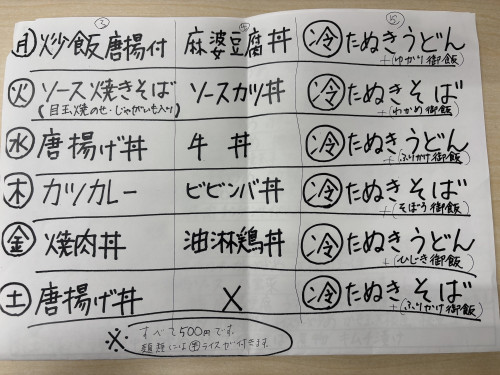 ③ ⑮ ⑮
㊊ 炒飯唐揚付 麻婆豆腐丼 ㊢冷 たぬきうどん
+(ゆかり御飯)
㊋ ソース焼きそば ソースカツ丼 冷 たぬきそば
(目玉焼のせ・じゃがいも入り) +(わかめ御飯)
㊌ 唐揚げ丼 牛丼 冷 たぬきうどん
+(ふりかけ御飯)
㊍ カツカレー ビビンバ丼 冷 たぬきそば
+(そぼろ御飯)
㊎ 焼肉丼 油淋鶏丼 冷 たぬきうどん
+(ひじき御飯)
㊏ 唐揚げ丼 × 冷 たぬきそば
+(ふりかけ御飯)
※ すべて500円です。
麺類には㊥ライスが付きます。